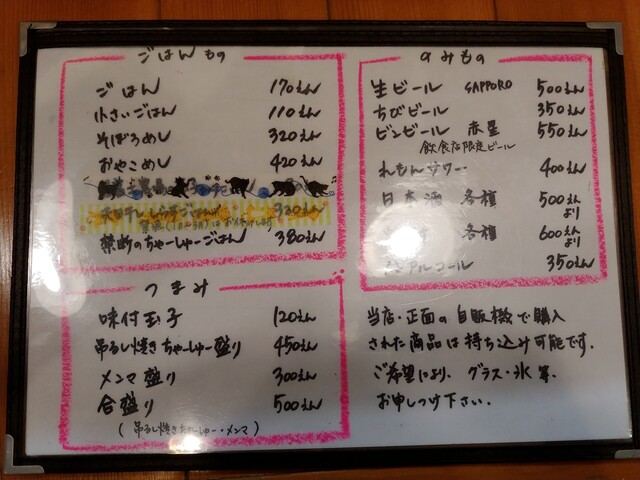 ごはんもの
ごはん 170えん
小さいごはん 110えん
そぼろめし 320えん
おやこめし 420えん
320えん
禁断のちゃーしゅーごはん 380えん
つまみ
味付玉子 120えん
吊るし焼きちゃーしゅー盛り 450えん
メンマ盛り 300えん
合盛り 500えん
(吊るし焼きちゃーしゅー・メンマ)
のみもの
生ビール SAPPORO 500えん
ちびビール 350えん
ビンビール 赤星 550えん
飲食店限定ビール
れもんサワー 400えん
日本酒 各種 500えんより
各種 600えんより
アルコール 350えん
当店・正面の自販機で購入
された商品は持ち込み可能です。
ご希望により、グラス・氷等、
お申しつけ下さい。